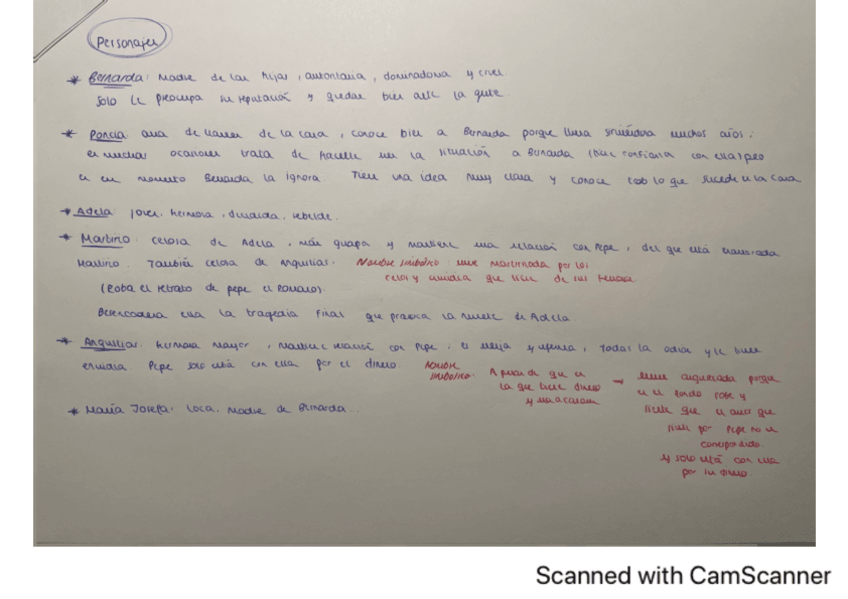 Personajes
* Bernarda: Madre de las hijas, autoritaria, dominadora y cruel.
Solo le preocupa su reputación y quedar bien ante la gente.
* Poncia: ama de llaves de la casa, conoce bien a Bernarda porque lleva sirviéndola muchos años.
en muchas ocasiones trata de hacerle ver la situación a Bernarda (tiene confianza con ella) pero
en ese momento Bernarda la ignora. Tiene una idea muy clara y conoce todo lo que sucede en la casa
* Adela: joven, hermosa, decidida, rebelde.
* Martirio: celosa de Adela, más guapa y mantiene una relación con Pepe, del que está enamorada
Martirio. También celosa de Angustias. Nombre simbólico: vive martirizada por los
celos y envidia que tiene de sus hermanas
(Roba el retrato de pepe el Romano).
Desencadena ella la tragedia final que provoca la muerte de Adela.
* Angustias: hermana mayor, mantiene relación con Pepe, es vieja y enferma, todas la odian y le tienen
envidia. Pepe solo está con ella por el dinero
Nombre simbólico: A pesar de que es
la que tiene dinero
y va a casarse
→ vive angustiada porque
en el fondo sabe y
siente que el amor que
siente por Pepe no es
correspondido.
y solo está con ella
por su dinero.
* María Josefa: Loca. Madre de Bernarda.
Scanned with CamScanner